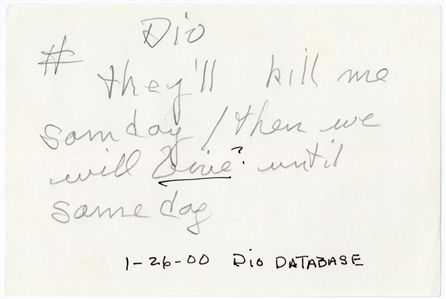 Dio
# they'll kill me
somday / then we
will Live? until
someday
1-26-00 Dio DATABASE